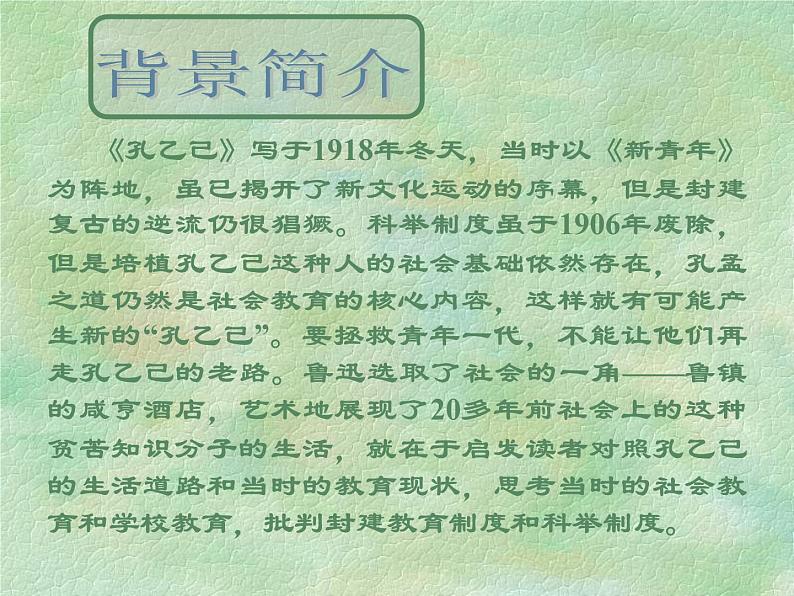 背景简介
《孔乙己》写于1918年冬天，当时以《新青年》
为阵地，虽已揭开了新文化运动的序幕，但是封建
复古的逆流仍很猖獗。科举制度虽于1906年废除，
但是培植孔乙己这种人的社会基础依然存在，孔孟
之道仍然是社会教育的核心内容，这样就有可能产
生新的“孔乙己”。要拯救青年一代，不能让他们再
走孔乙己的老路。鲁迅选取了社会的一角——鲁镇
的咸亨酒店，艺术地展现了20多年前社会上的这种
贫苦知识分子的生活，就在于启发读者对照孔乙己
的生活道路和当时的教育现状，思考当时的社会教
育和学校教育，批判封建教育制度和科举制度。